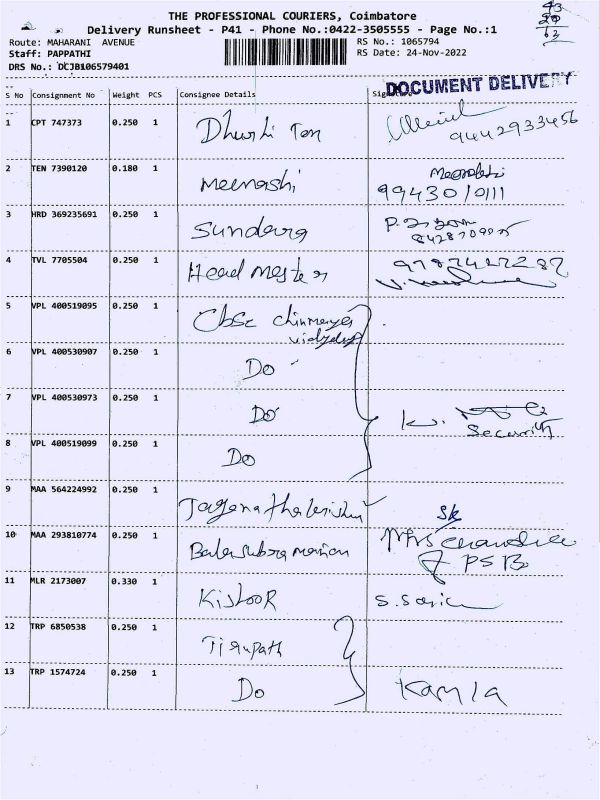 43
20
63
THE PROFESSIONAL COURIERS, Coimbatore
Delivery Runsheet - P41 - Phone No.:0422-3505555 - Page No.:1
Route: MAHARANI AVENUE
RS No.: 1065794
Staff: PAPPATHI
RS Date: 24-Nov-2022
DRS No.: DCJB106579401
DOCUMENT DELIVERY
S No Consignment No Weight PCS Consignee Details
1 CPT 747373 0.250 1
9442933456
2 TEN 7390120 0.180 1 Meenashi
9943010111
3 HRD 369235691 0.250 1 Sundara
4 TVL 7705504 0.250 1 Head mester
5 VPL 400519095 0.250 1 Cbse chinmaya
6 VPL 400530907 0.250 1 Do
7 VPL 400530973 0.250 1 Do
Security
8 VPL 400519099 0.250 1 Do
9 MAA 564224992 0.250 1
10 MAA 293810774 0.250 1
PSB
11 MLR 2173007 0.330 1 Kishoor
12 TRP 6850538 0.250 1 Tirupath
13 TRP 1574724 0.250 1 Do Kamla